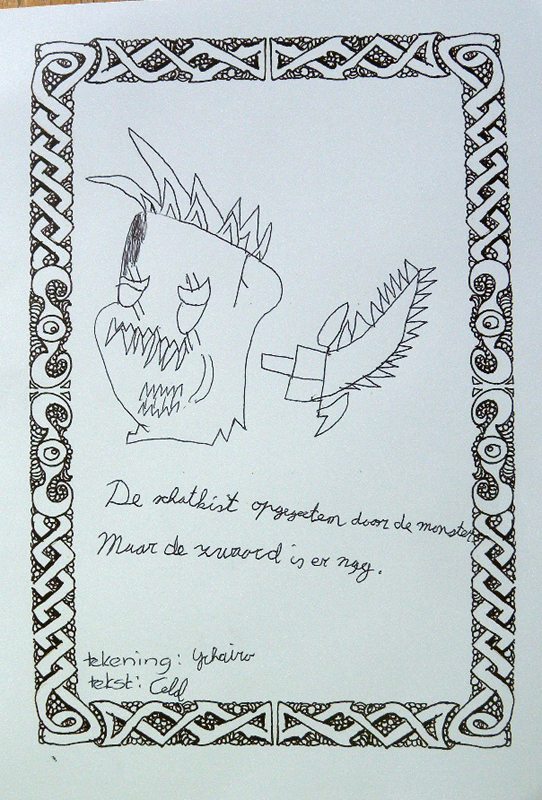 De schatkist opgegeetem door de monster
Maar de zwaard is er nog.
tekening: Ychairo
tekst: Celd